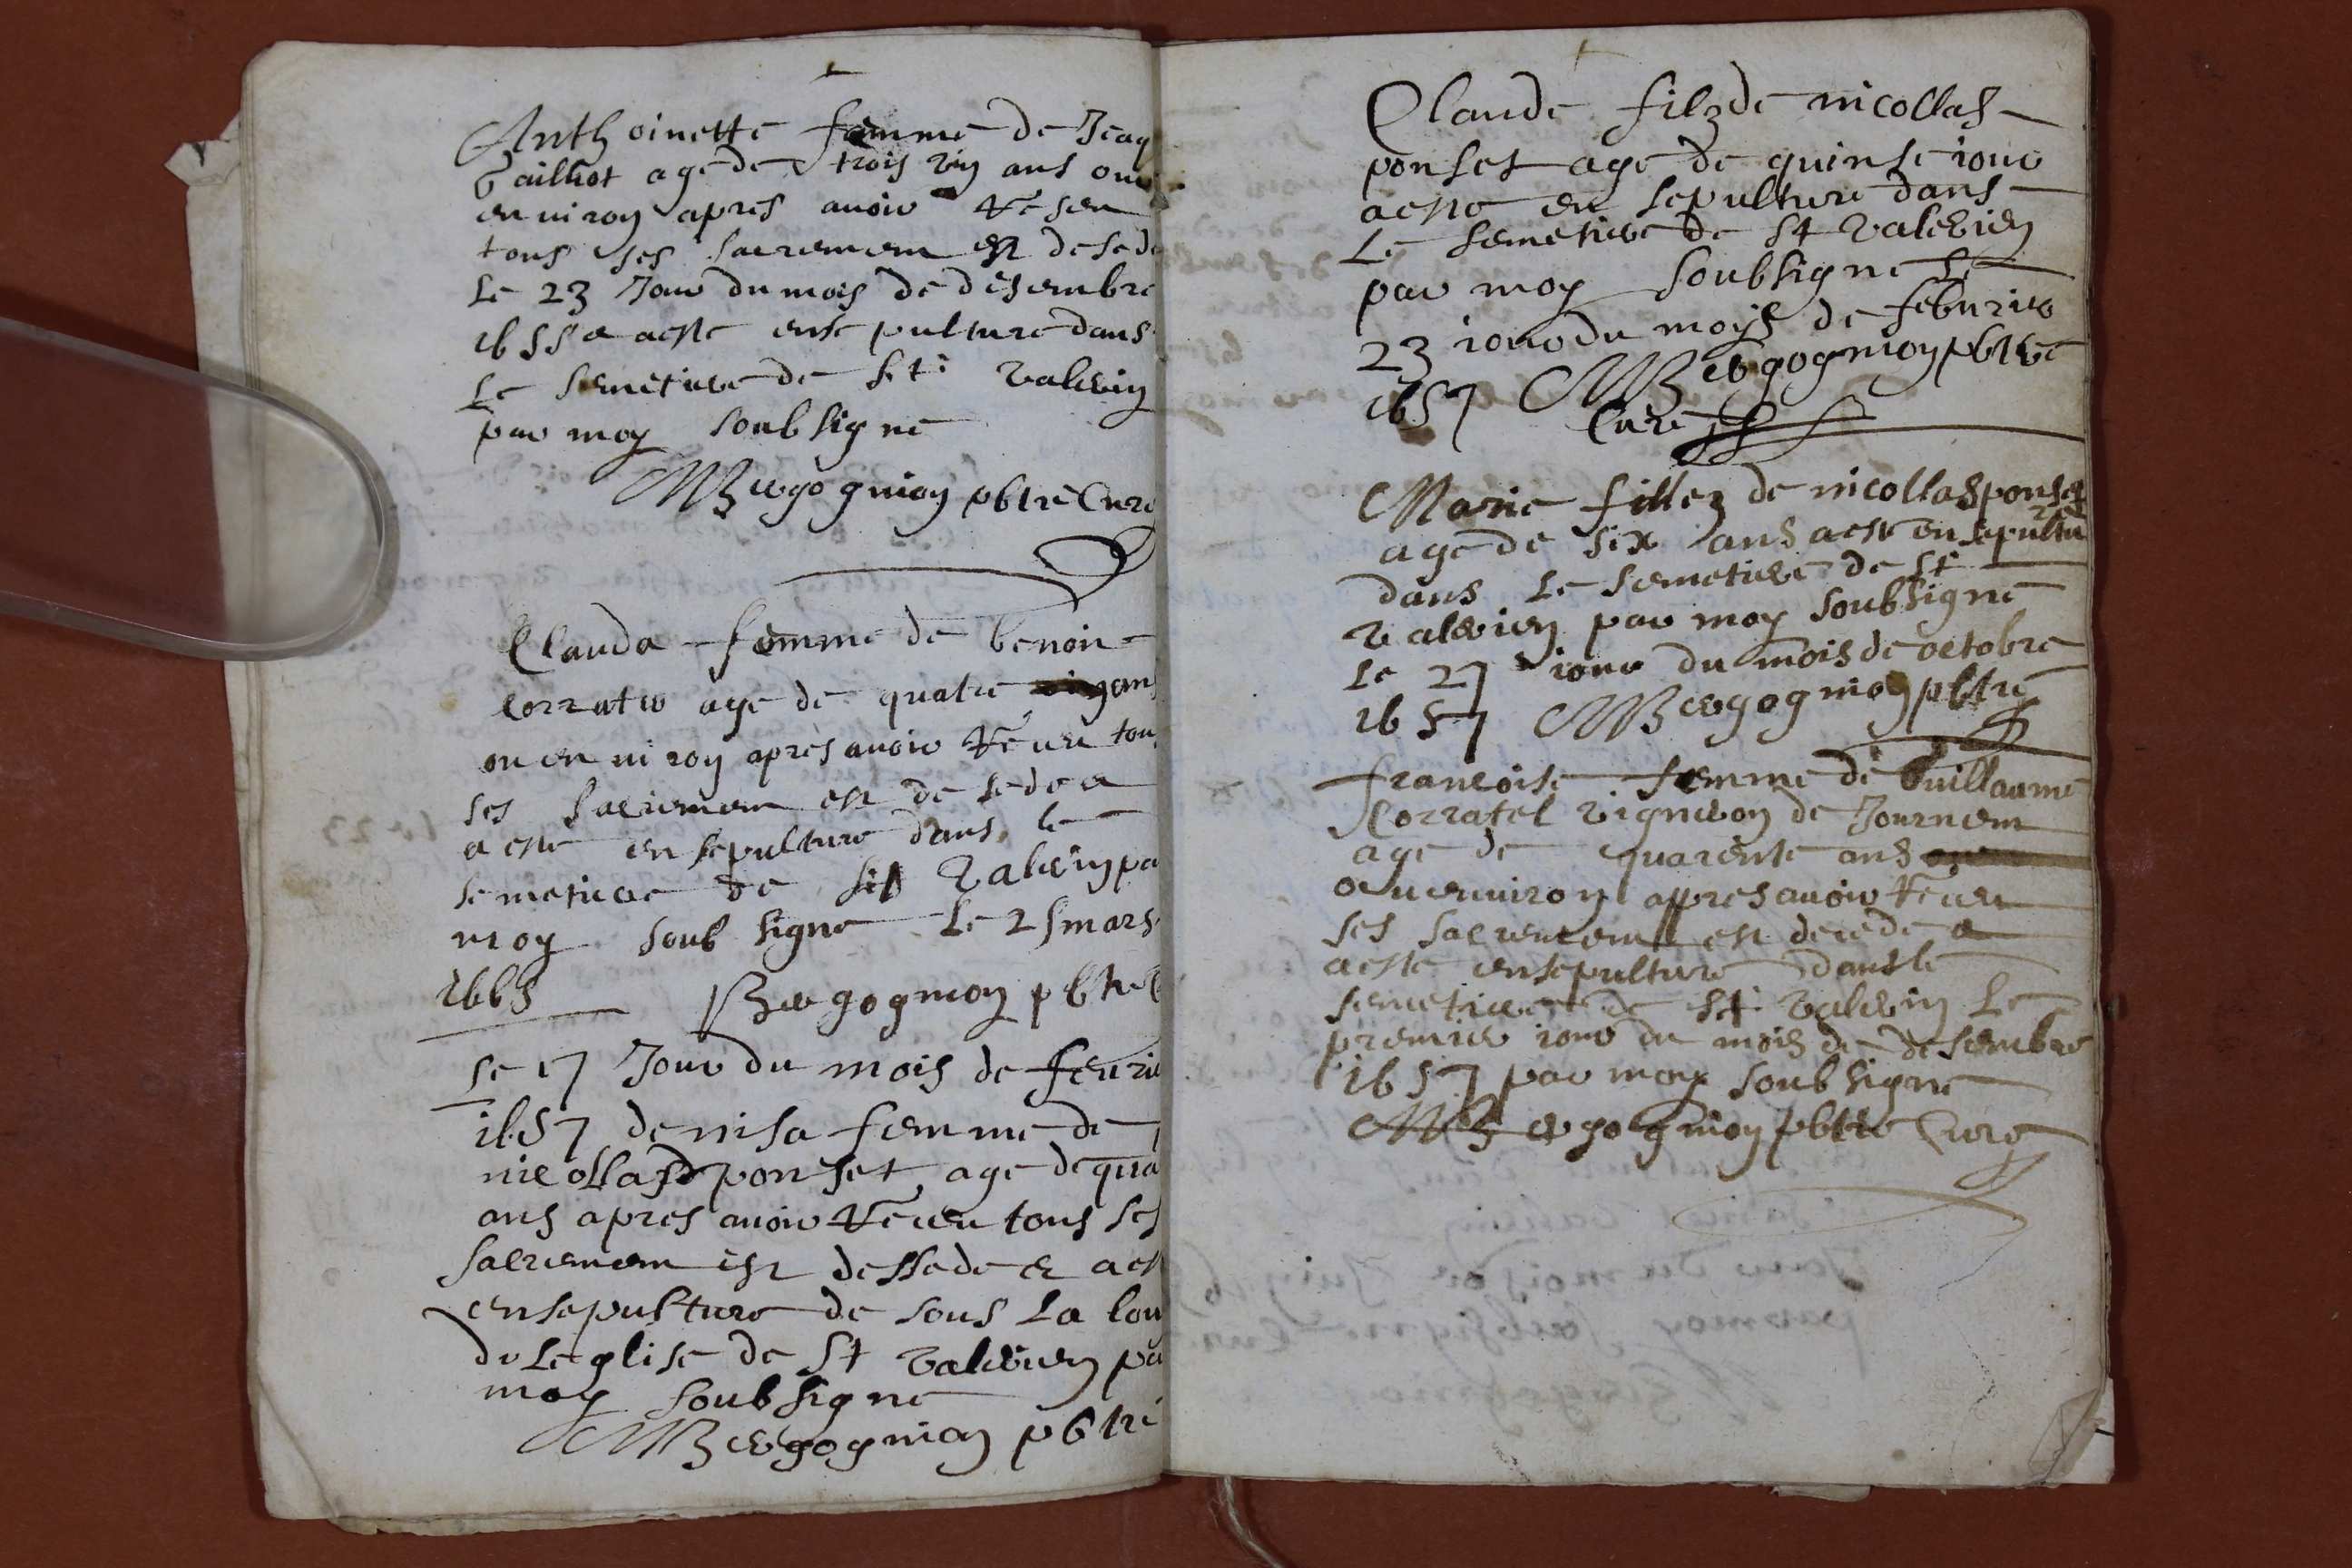 Anthoinette femme de Jeaq
Vailhot age de trois vin ans ou
enuiron apres auoir reseu
tous ses sacremem est desede
Le 23 Jour du mois de desembre
1655 a aeste ensepulture dans
Le semetiere de St: Valerin
par moy soubsigne
MBergognion pbtre Cure
Clauda femme de benoit
Corrater age de quatre ans
ou enuiron apres auoir reseu tou
ses sacremem est desede a
aeste ensepulture dans le
semetiere de St Valerin pa
moy soub signe Le 25 mars
Bergognion pbtre C
Le 17 Jour du mois de feurie
1657 denisa femme de
nicollas ponset age de qua
ans apres auoir reseu tous ses
sacremem est dessede & aest
ensepulture de sous La
de Leglise de St Valerien pa
moy soubsigne
MBergognion pbtre
Claude filz de nicollas
ponset age de quinse iour
aeste en sepulture dans
Le semetiere de St Valerien
par moy soubsigne Le
23 iour du moys de feburier
1657 MBergognion pbtre
Cure
Marie fillez de nicollas ponset
age de six ans aeste ensepultu
re
dans Le semetiere de St
Valerien par moy soubsigne
Le 27 iour du mois de octobre
1657 MBergognion pbtre
francoise femme de Guillaume
Corratel vigneron de Journem
age de quarente ans
ou enuiron appres auoir reseu
ses sacrement est decede a
aeste ensepulture dans le
semetiere de St Valerin Le
premier iour du mois de desembre
1657 par moy soubsigne
MBergognion pbtre Cure